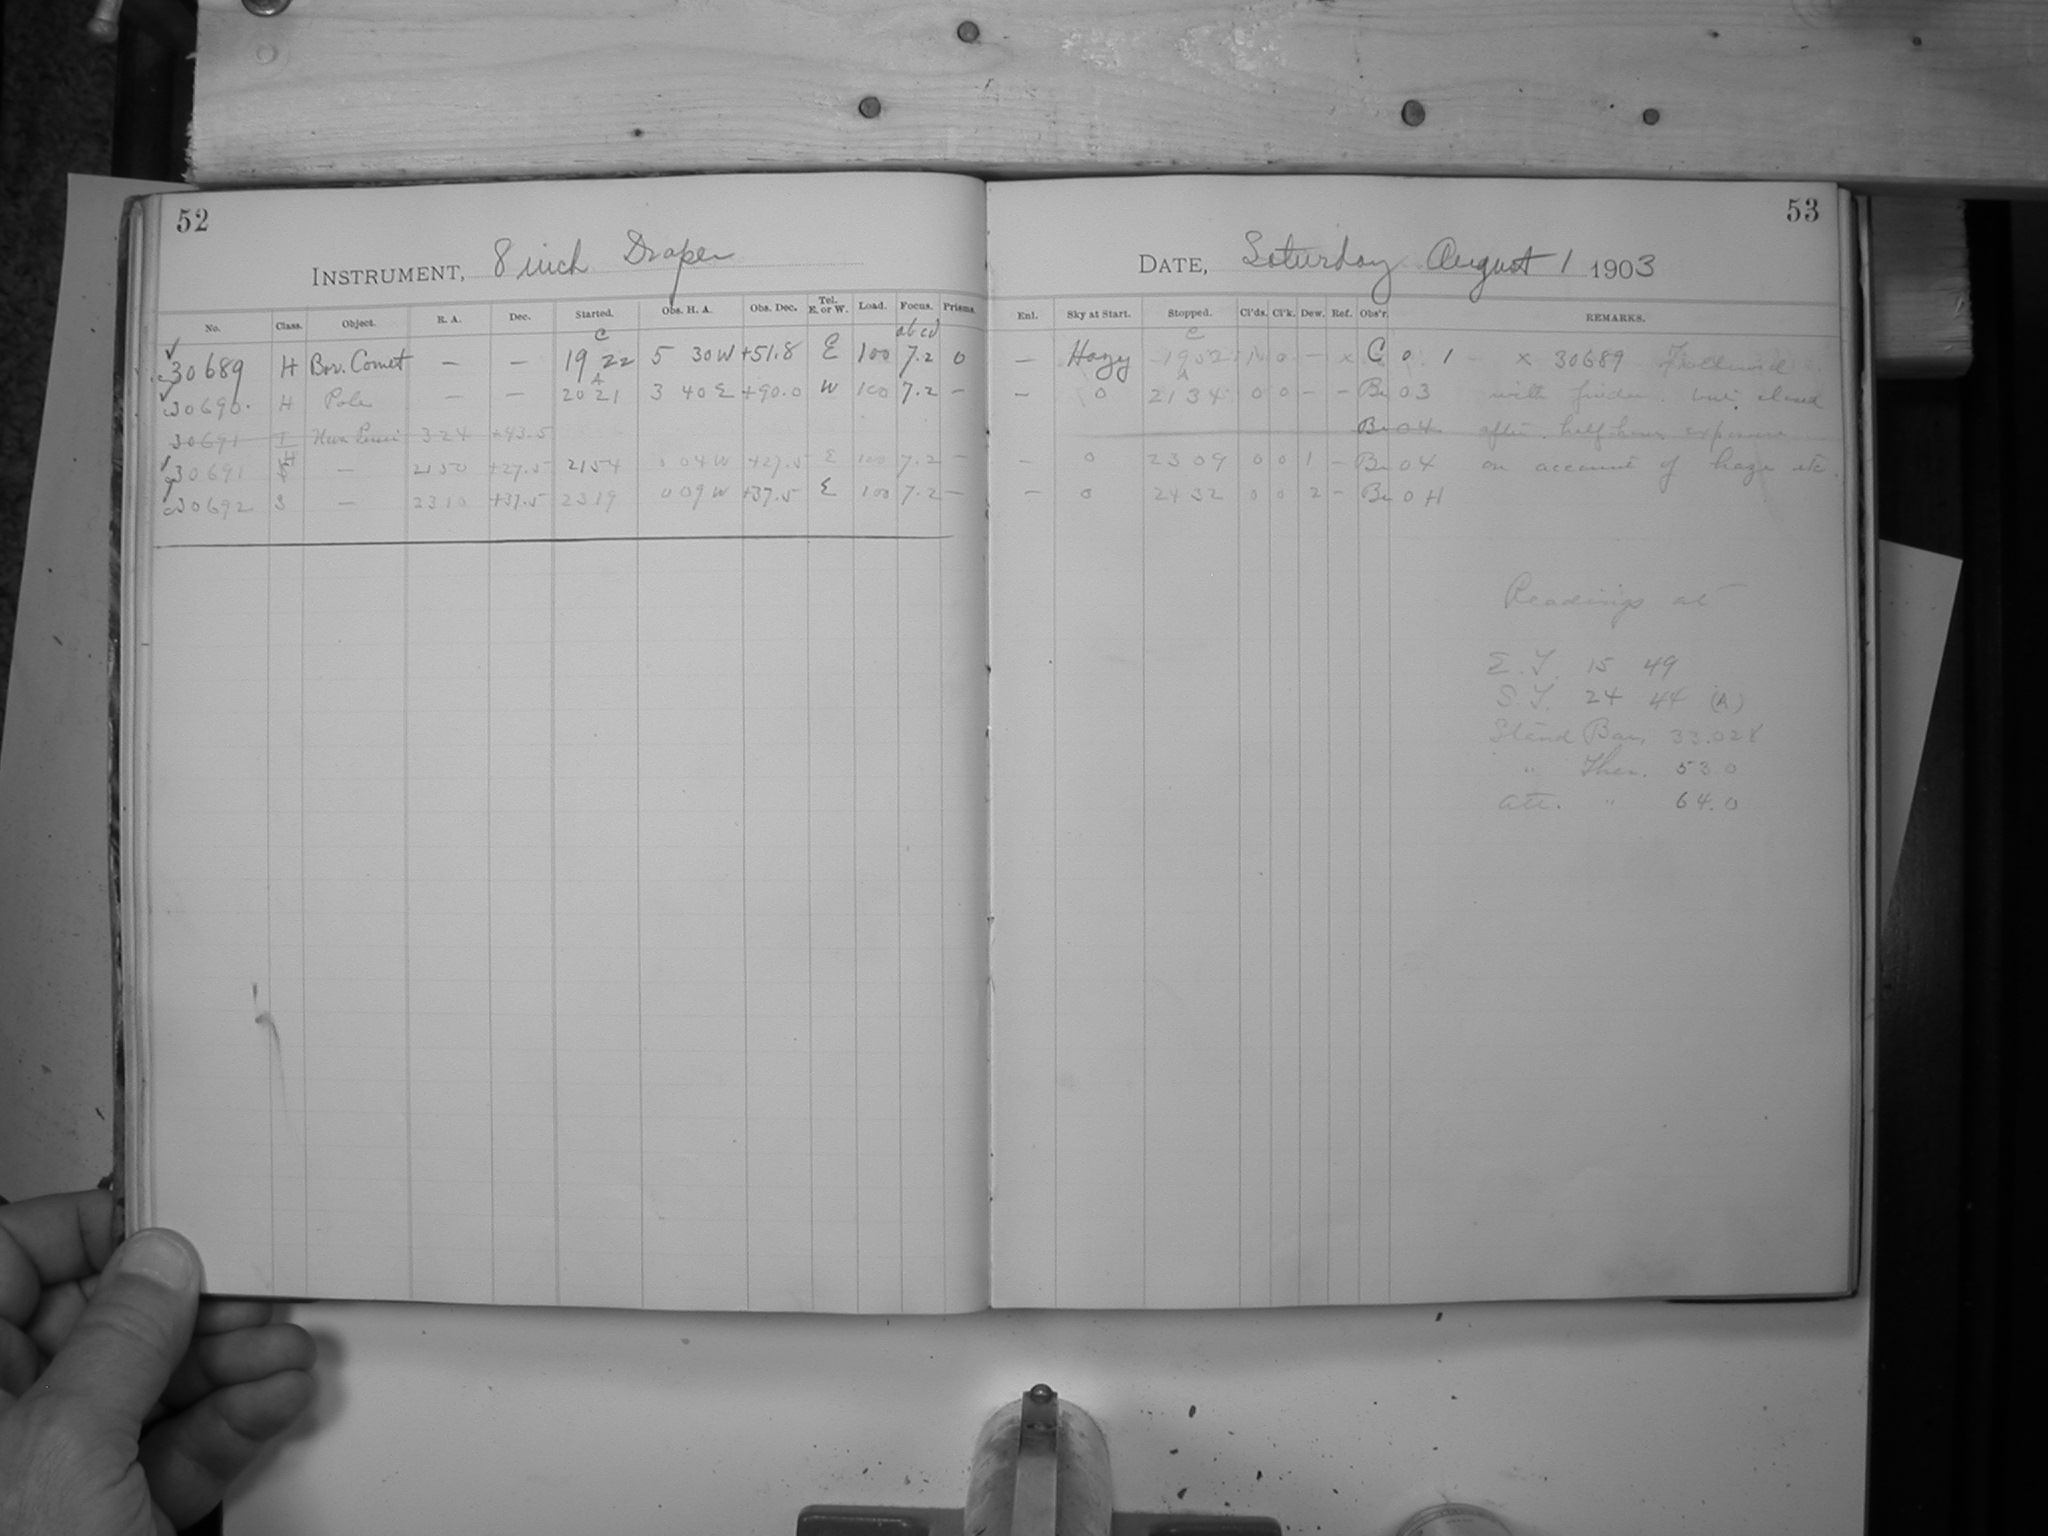 52
INSTRUMENT, 8 inch Draper
No. Class. Object. R. A. Dec. Started. Obs. H. A. Obs. Dec. Tel. E. or W. Load. Focus. Prisms.
C abcd
30689 H Bor. Comet — — 19 22 5 30 W +51.8 E 100 7.2 0
A
30690. H Pole — — 20 21 3 40 E +90.0 W 100 7.2 —
30691 I 324 +43.5
30691 H — 2150 +27.5 2154 0 04 W +27.5 E 100 7.2 —
30692 S — 2310 +37.5 2319 0 09 W +37.5 E 100 7.2 —
53
DATE, Saturday August 1 1903
Enl. Sky at Start. Stopped. Cl'ds. Cl'k. Dew. Ref. Obs'r. REMARKS.
C
— Hazy 1952 0 — x C 0 1 x 30689 Followed
A
— 0 2134 0 0 — — Br 03 with finder but closed
Br 04 after half hour exposure
— 0 2309 0 0 1 — Br 04 on account of haze etc.
— 0 2432 0 0 2 — Br 0 H
Readings at
E. T. 15 49
S. T. 24 44 (A)
Stand Bar. 33.028
" Ther. 53.0
att. " 64.0